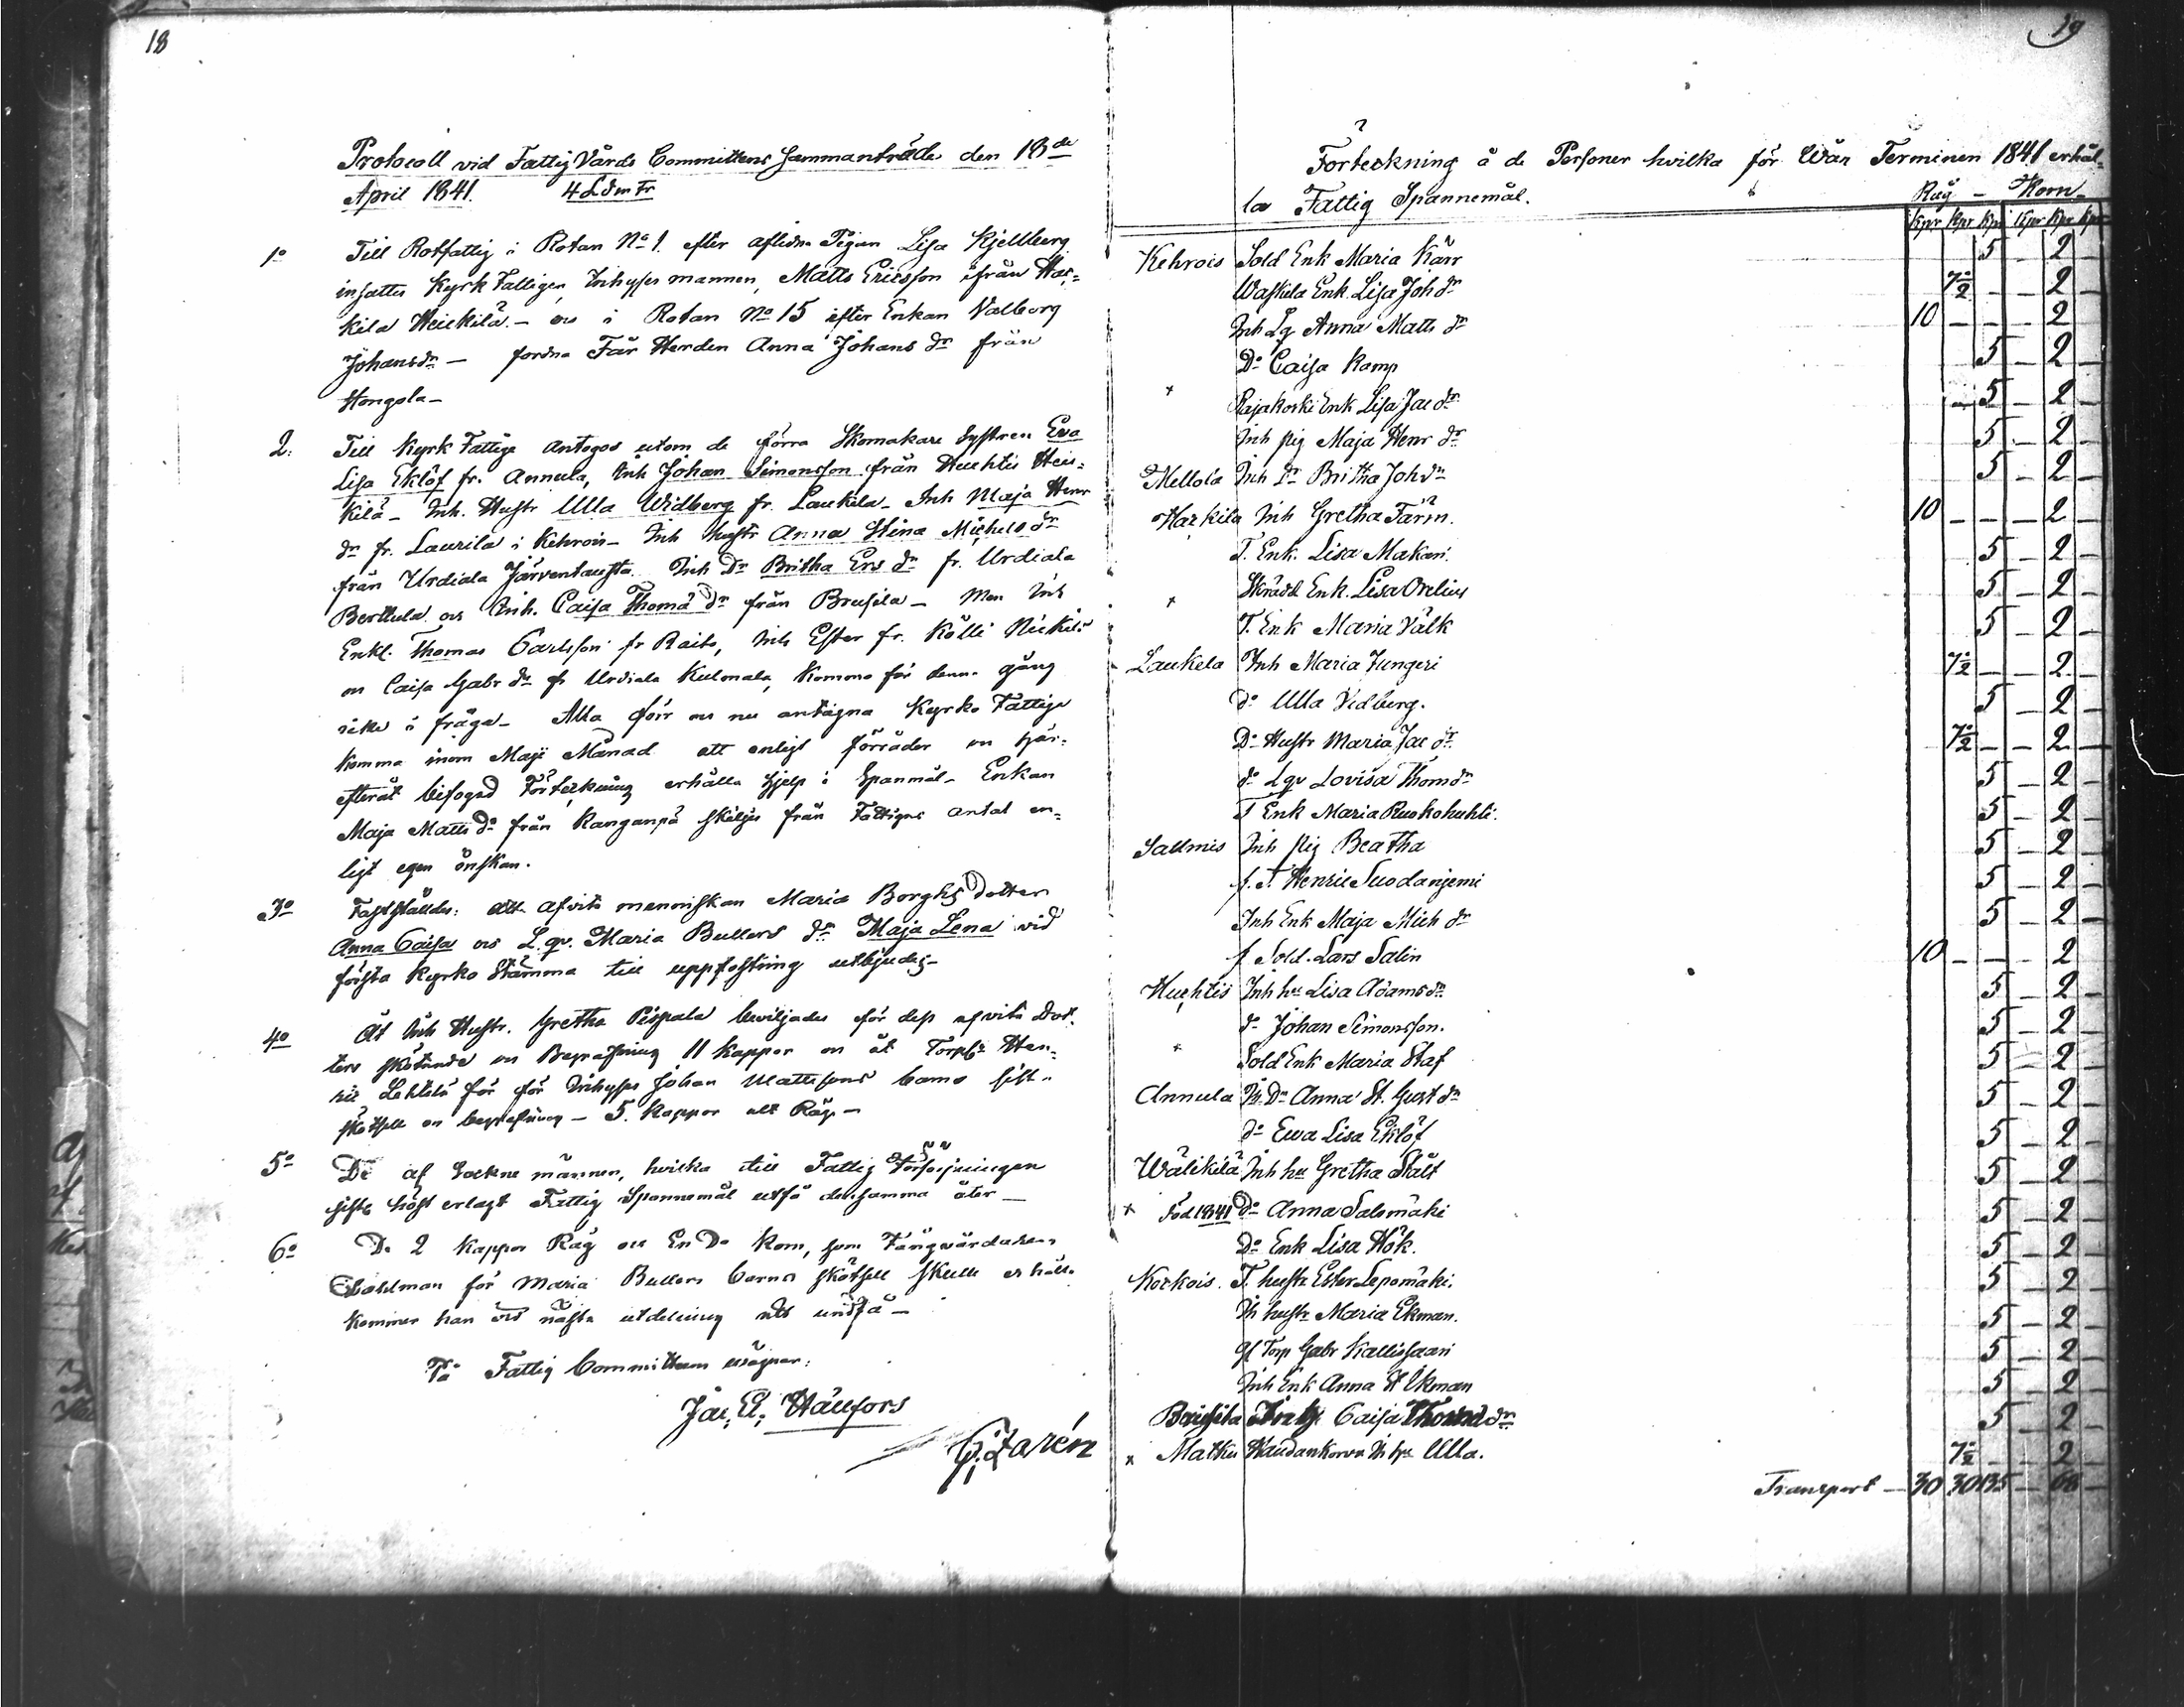 18
Protocoll vid FattigVårds Committens Sammanträde den 18de
April 1841. 4 S. i F.
1o Till Rotfattig i Rotan No 1. efter aflidna Pigan Lisa Kjellberg
insattes Kyrk Fattigen, Inhyses mannen, Matts Ericsson ifrån Har-
kila Heickilä – oc i Rotan No 15 efter Enkan Valborg
Johansdr – fordna Får Herden Anna Johans dr från
Hongola –
2. Till Kyrk Fattige antogos utom de förra Skomakare systren Eva
Lisa Eklöf fr. Annula, Inh Johan Simonsson från Huhtis Hei-
kilä – Inh. Hustr Ulla Widberg fr. Laukila – Inh Maja Henr
dr fr. Laurila i Kehrois – Inh Hustr Anna Stina Michels dr
från Urdiala Järventausta. Inh Dr Britha Ers dr fr. Urdiala
Berttula oc Inh. Caisa Thomä dr från Brusila – Men Inh
Enkl. Thomas Carlsson fr Raito, Inh Ester fr. Kölli Nickilä
oc Caisa Gabr dr fr Urdiala Kulmala, komma för denna gång
icke i fråga – Alla förr oc nu antagna Kyrko Fattige
komma inom Maji Månad att enligt förråder oc här-
efteråt bifogad Förteckning erhålla hjelp i Spanmål – Enkan
Maja Matts dr från Kanganpä skiljes från Fattiges antal en-
ligt egen önskan.
3o Fastställdes: att afvita menniskan Maria Borghs dotter
Anna Caisa oc L. qv. Maria Bullers dr Maja Lena vid
första Kyrko Stämma till uppfostring utbjudes –
4o Åt Inh Hustr. Gretha Pispala beviljades för dess afvita dot-
ters skötande oc Begrafning 11 kappor oc åt Torpr Hen-
ric Lehtilä för för Inhyses Johan Mattssons barns sist-
skötsell oc begrafning – 5. kappor alt Råg –
5o De af Sockne männen, hvilka till Fattig Försörjningen
sista höst erlagt Fattig Spannemål utfå densamma åter –
6o De 2 kappor Råg oc En Do Korn, som Fångvårdaren
Dahlman för Maria Bullers barns skötsell skulle erhålla
kommer han vid nästa utdelning att undfå –
På Fattig Committeens vägnar:
Jac. E. Hällfors
G. Zarén
19
Förteckning å de Personer hvilka för Wår Terminen 1841 erhål-
la Fattig Spannemål. Råg – Korn –
Kpr Kpr Kpr Kpr Kpr Kpr
Kehrois Sold Enk Maria Kärr 5 – 2
Waskila Enk. Lisa Joh dr 7½ – – 2 –
Inh Lq Anna Matts dr 10 – – – 2
Do Caisa Kamp 5 – 2
x Rajakoski Enk Lisa Jac dr – 5 – 2 –
Inh pig Maja Henr dr 5 – 2 –
Mellola Inh Dr Britha Joh dr 5 – 2 –
Harkila Inh Gretha Färm. 10 – – – 2 –
T. Enk. Lisa Makari. 5 – 2 –
x Skrädd Enk. Lisa Orelius 5 – 2 –
T. Enk Maria Välk 5 – 2 –
Laukela Inh Maria Jungeri 7½ – – 2 –
do Ulla Vidberg. 5 – 2 –
Do Hustr Maria Jac dr 7½ – – 2 –
do Lqv Lovisa Thom dr 5 – 2 –
T Enk Maria Ruokohuhti. 5 – 2 –
Sallmis Inh pig Beatha 5 – 2 –
f. T. Henric Suodanjemi 5 – 2 –
Inh Enk Maja Mich dr 5 – 2 –
f. Sold. Lars Salin 10 – – – 2 –
Huhtis Inh hu Lisa Adams dr 5 – 2 –
do Johan Simonsson. 5 – 2 –
x Sold Enk Maria Staf 5 – 2 –
Annula Ih. Dr Anna St. Gust dr 5 – 2 –
do Ewa Lisa Eklöf 5 – 2 –
Wälikilä Inh hu Gretha Stålt 5 – 2 –
x Död 1841 do Anna Salomäki 5 – 2 –
Do Enk Lisa Hök. 5 – 2 –
Korkois. T. hustr Ester Leposmäki. 5 – 2 –
Ih hustr Maria Ekman. 5 – 2 –
gl Torp Gabr Kallissaari 5 – 2 –
Inh Enk Anna St Ekman 5 – 2 –
Brusila Inh Caisa Thomä dr 5 – 2 –
x Matku Haudankorva Ih hu Ulla. 7½ – – 2 –
Transport – 30 30 135 – 68 –